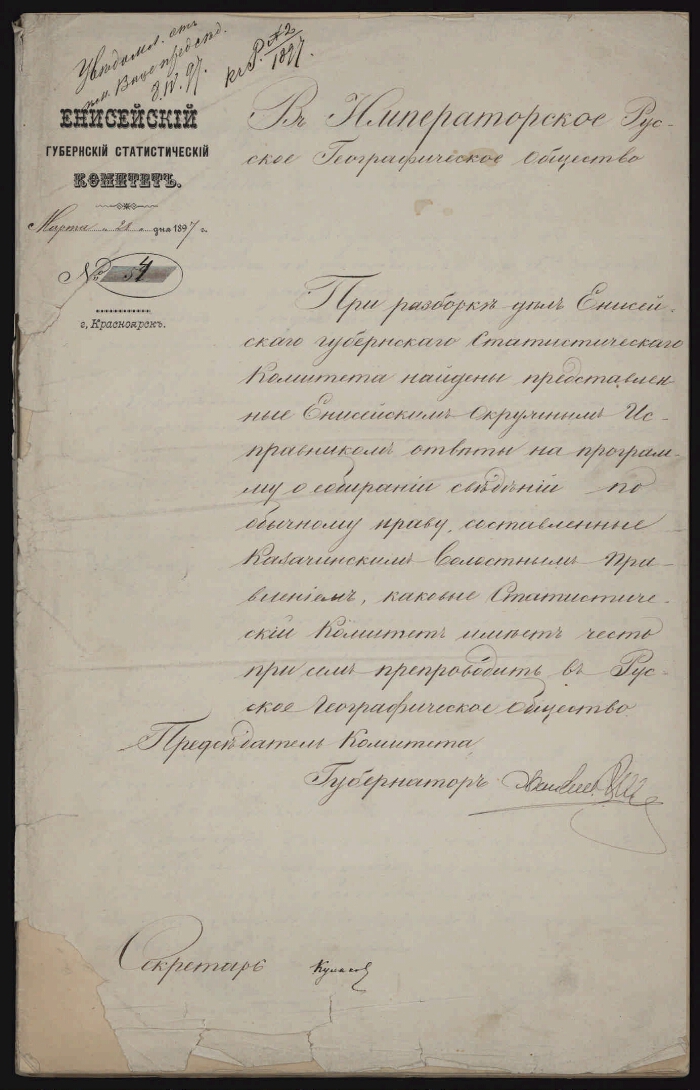 Уведомл. отъ
8.IV.97.
къ Р. А2/1897.
ЕНИСЕЙСКІЙ
ГУБЕРНСКІЙ СТАТИСТИЧЕСКІЙ
КОМИТЕТЪ.
Марта дня 1897 г.
№ 54
г. Красноярскъ.
Въ Императорское Рус-
ское Географическое Общество
При разборкѣ дѣлъ Енисей-
скаго губернскаго Статистическаго
Комитета найдены представлен
ные Енисейскимъ Окружнымъ Ис-
правникомъ отвѣты на програм-
му о собираніи свѣдѣній по
обычному праву, составленные
Казачинскимъ Волостнымъ Пра-
вленіемъ, каковые Статистиче-
скій Комитетъ имѣетъ честь
при семъ препроводить въ Рус-
ское Географическое Общество
Предсѣдатель Комитета,
Губернаторъ
Секретарь